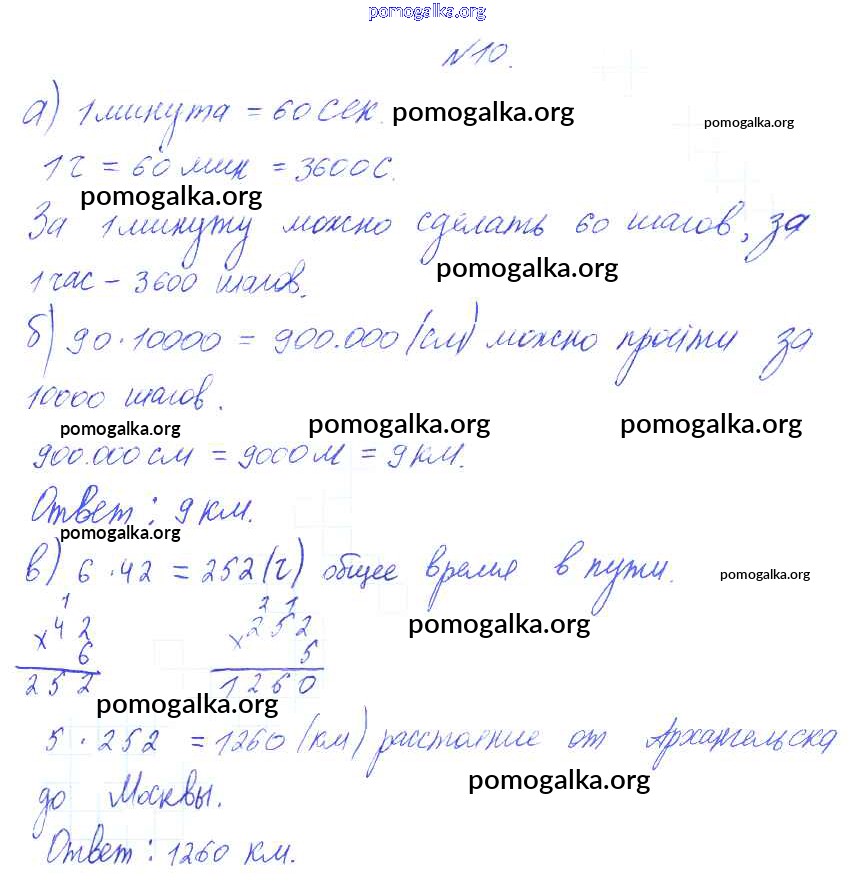 pomogalka.org
№10.
а) 1 минута = 60 сек. pomogalka.org pomogalka.org
1 ч = 60 мин = 3600 с.
pomogalka.org
За 1 минуту можно сделать 60 шагов, за
1 час – 3600 шагов. pomogalka.org
б) 90 · 10000 = 900.000 (см) можно пройти за
10000 шагов.
pomogalka.org pomogalka.org pomogalka.org
900.000 см = 9000 м = 9 км.
Ответ: 9 км.
pomogalka.org
в) 6 · 42 = 252 (ч) общее время в пути. pomogalka.org
1 2 1
× 42 × 252 pomogalka.org
6 5
252 1260
pomogalka.org
5 · 252 = 1260 (км) расстояние от Архангельска
pomogalka.org
до Москвы.
Ответ: 1260 км.